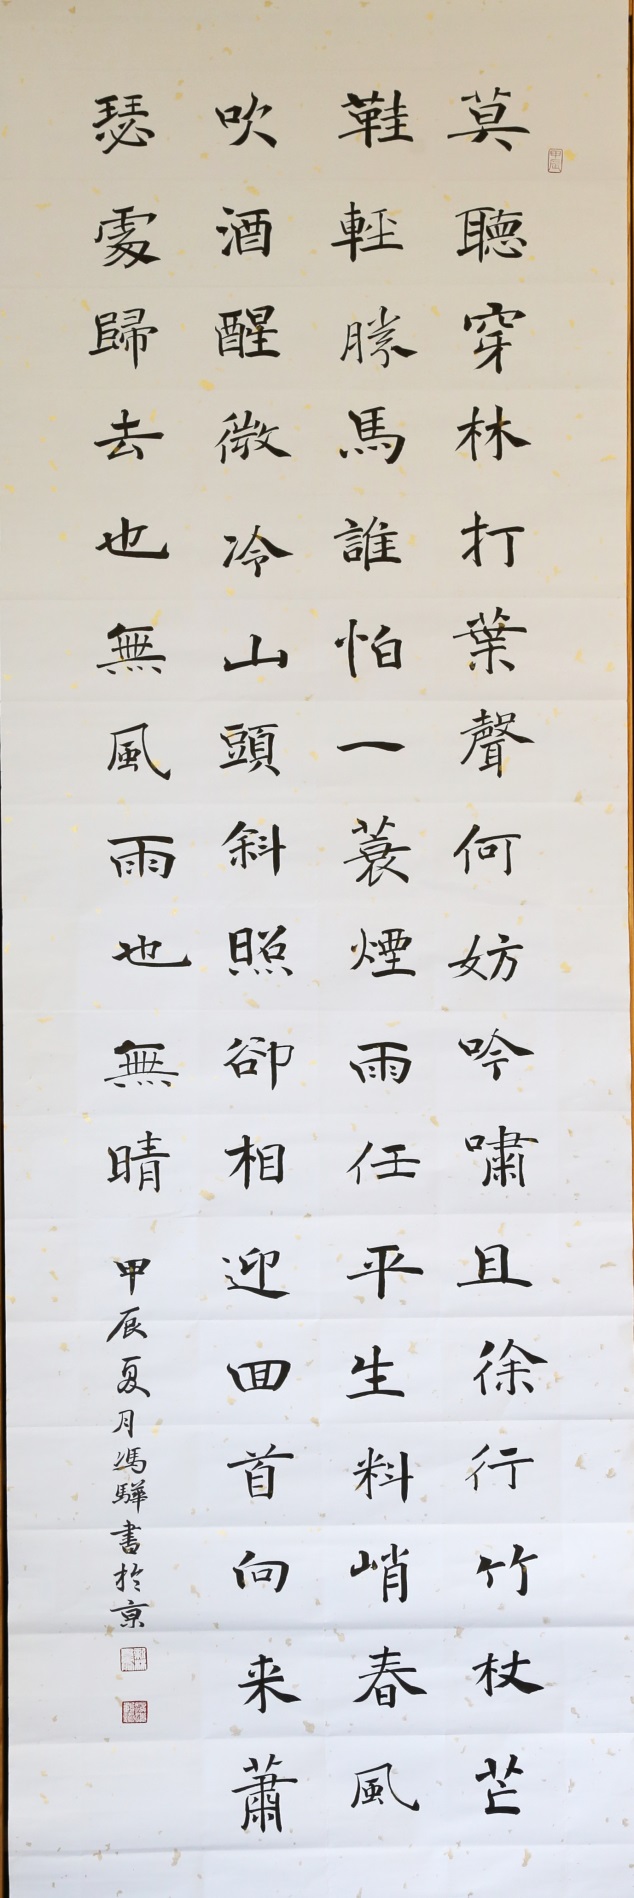 莫聽穿林打葉聲何妨吟嘯且徐行竹杖芒
鞋輕勝馬誰怕一蓑煙雨任平生料峭春風
吹酒醒微冷山頭斜照卻相迎回首向来蕭
瑟處歸去也無風雨也無晴
甲辰夏月馮驊書於京